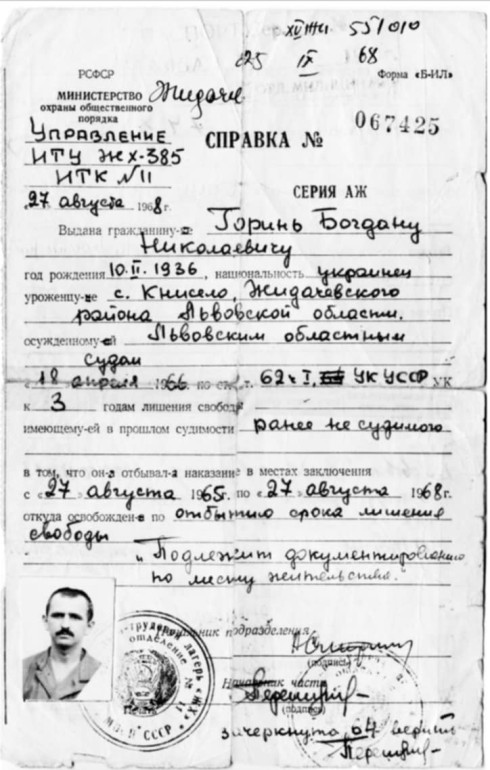 XVIIIЖИ 551010
25 IX 68
РСФСР
Форма «Б-ИЛ»
МИНИСТЕРСТВО
охраны общественного
порядка
Жидачев
Управление
ИТУ ЖХ-385
ИТК №11
СПРАВКА № 067425
СЕРИЯ АЖ
«27» августа 1968 г.
Выдана гражданину-ке Горинь Богдану
Николаевичу
год рождения 10.II.1936, национальность украинец
уроженцу-ке с. Книсело, Жидачевского
района Львовской области.
осужденному-ей Львовским областным
судом
«18» апреля 1966 по ст.ст. 62 ч I, УК УССР УК
к 3 годам лишения свободы
имеющему-ей в прошлом судимости ранее не судимого
в том, что он-а отбывал-а наказание в местах заключения
с «27» августа 1965 г. по «27» августа 1968 г.
откуда освобожден-а по отбытию срока лишения
свободы
"Подлежит документированию
по месту жительства."
Начальник подразделения
(подпись)
Начальник части
(подпись)
зачеркнуто 64 верить